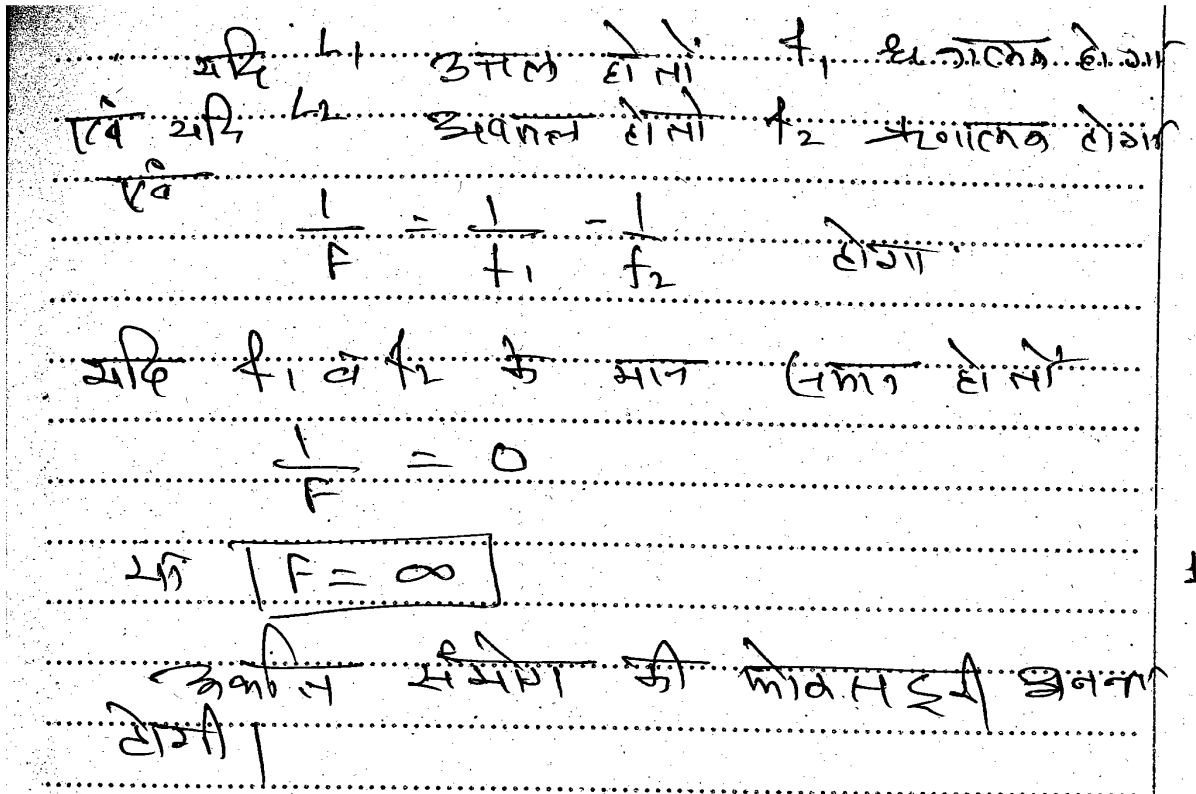 यदि L1 उत्तल हो तो f1 धनात्मक होगा
एवं यदि L2 अवतल हो तो f2 ऋणात्मक होगा
एवं
1/F = 1/f1 - 1/f2 होगा
यदि f1 व f2 के मान समान हो तो
1/F = 0
या F = ∞
अर्थात संयोग की फोकस दूरी अनन्त
होगी।